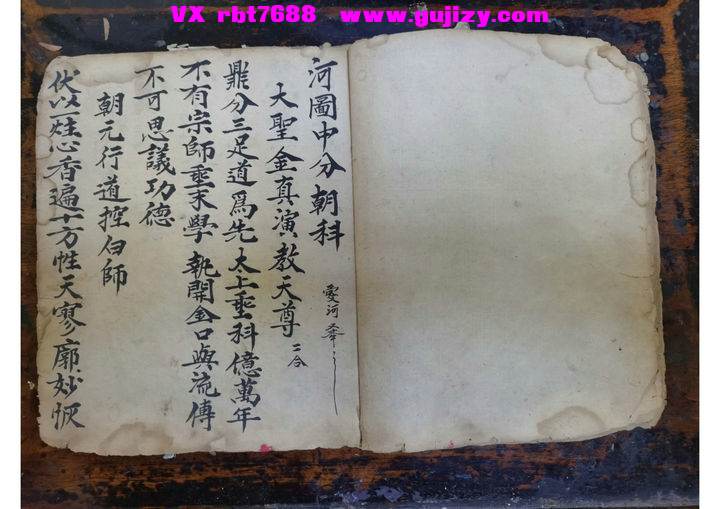 VX rbt7688 www.gujizy.com
河圖中分朝科
大聖金真演教天尊 二合
鼎分三足道爲先太上垂科億萬年
不有宗師垂末學 孰開金口與流傳
不可思議功德
朝元行道控白師
伏以一炷心香遍十方性天寥廓妙